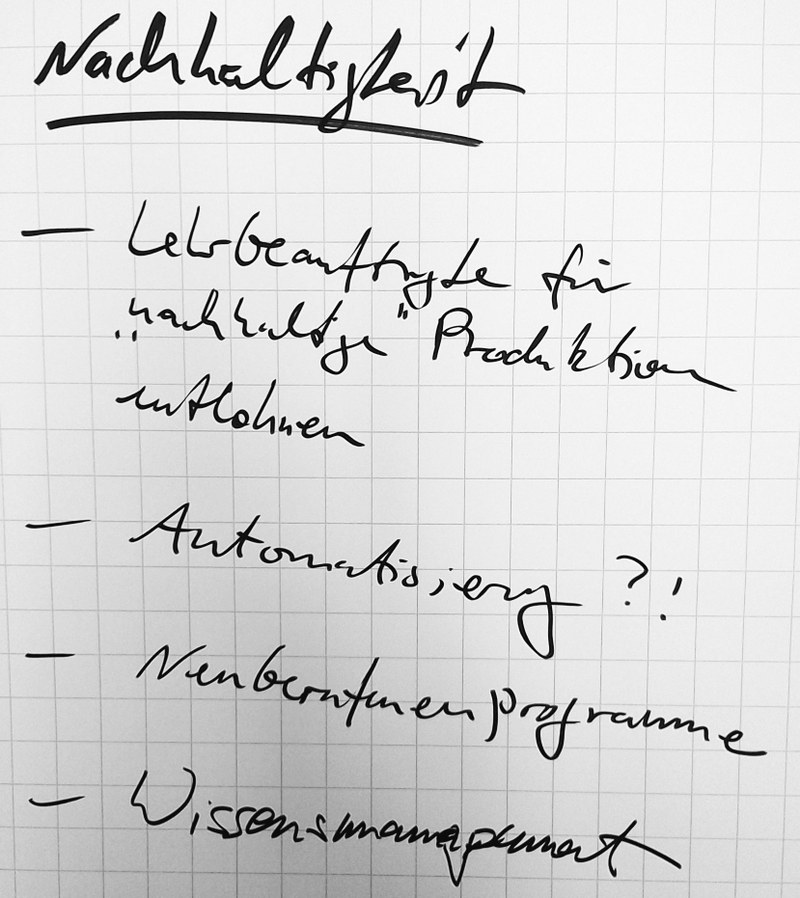 Nachhaltigkeit
— Lehrbeauftragte für
„nachhaltige" Produktion
entlohnen
— Automatisierung ?!
— Neuberufenenprogramme
— Wissensmanagement